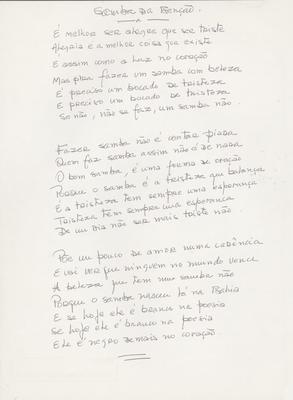 Samba da Benção.
É melhor ser alegre que ser triste
Alegria é a melhor coisa que existe
É assim como a luz no coração
Mas pra fazer um samba com beleza
É preciso um bocado de tristeza
É preciso um bocado de tristeza
Se não, não se faz, um samba não.
Fazer samba não é contar piada
Quem faz samba assim não é de nada
O bom samba, é uma forma de oração
Porque o samba é a tristeza que balança
E a tristeza tem sempre uma esperança
Tristeza tem sempre uma esperança
De um dia não ser mais triste não.
Põe um pouco de amor numa cadência
E vai ver que ninguém no mundo vence
A beleza que tem num samba não
Porque o samba nasceu lá na Bahia
E se hoje ele é branco na poesia
Se hoje ele é branco na poesia
Ele é negro demais no coração.